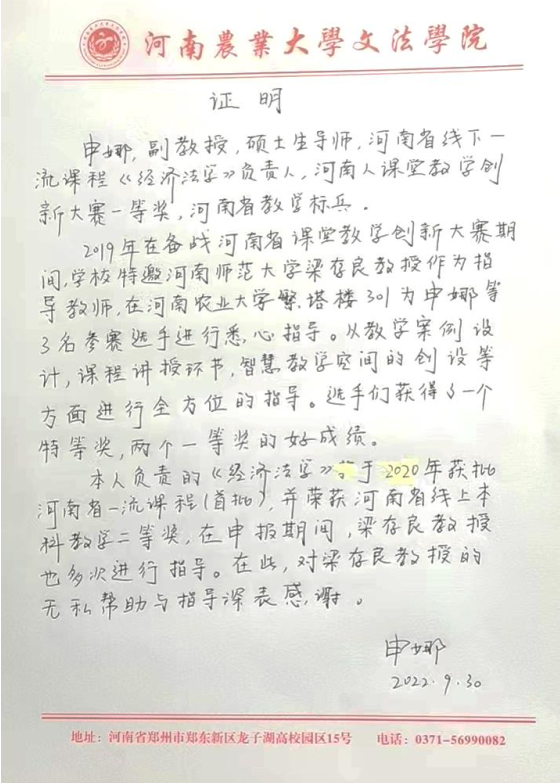 河南農業大學文法學院
证明
申娜,副教授,硕士生导师,河南省线下一
流课程《经济法学》负责人,河南人课堂教学创
新大赛一等奖,河南省教学标兵。
2019年在备战河南省课堂教学创新大赛期
间,学校特邀河南师范大学梁存良教授作为指
导教师,在河南农业大学繁塔楼301为申娜等
3名参赛选手进行悉心指导。从教学案例设
计,课程讲授环节,智慧教学空间的创设等
方面进行全方位的指导。选手们获得了一个
特等奖,两个一等奖的好成绩。
本人负责的《经济法学》于2020年获批
河南省一流课程(首批),并荣获河南省线上本
科教学二等奖,在申报期间,梁存良教授
也多次进行指导。在此,对梁存良教授的
无私帮助与指导深表感谢。
申娜
2022.9.30
地址:河南省郑州市郑东新区龙子湖高校园区15号 电话:0371-56990082